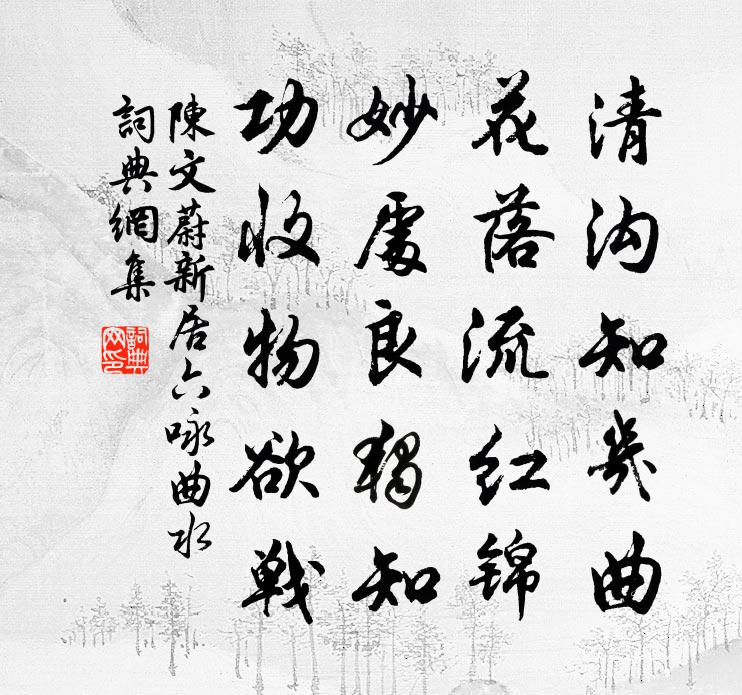 清沟知幾曲
花落流红锦
妙處良獨知
功收物欲戰
陳文蔚新居六咏曲水
詞典網集
詞典
网印